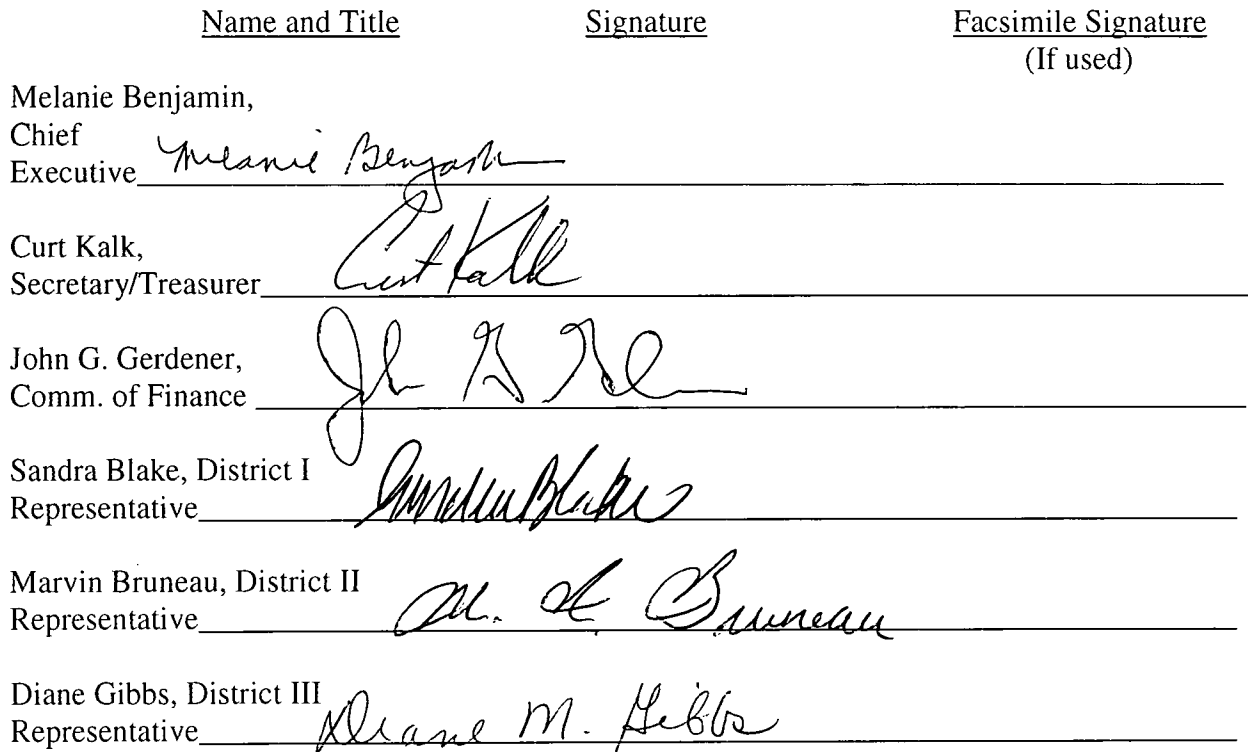 Name and Title Signature Facsimile Signature
(If used)
Melanie Benjamin,
Chief
Executive Melanie Benjamin
Curt Kalk,
Secretary/Treasurer Curt Kalk
John G. Gerdener,
Comm. of Finance John G
Sandra Blake, District I
Representative Sandra Blake
Marvin Bruneau, District II
Representative M. Bruneau
Diane Gibbs, District III
Representative Diane M. Gibbs